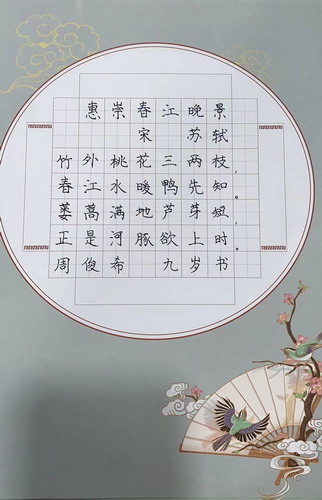 惠崇春江晚景
宋 苏轼
竹外桃花三两枝，
春江水暖鸭先知。
蒌蒿满地芦芽短，
正是河豚欲上时。
周俊希 九岁书